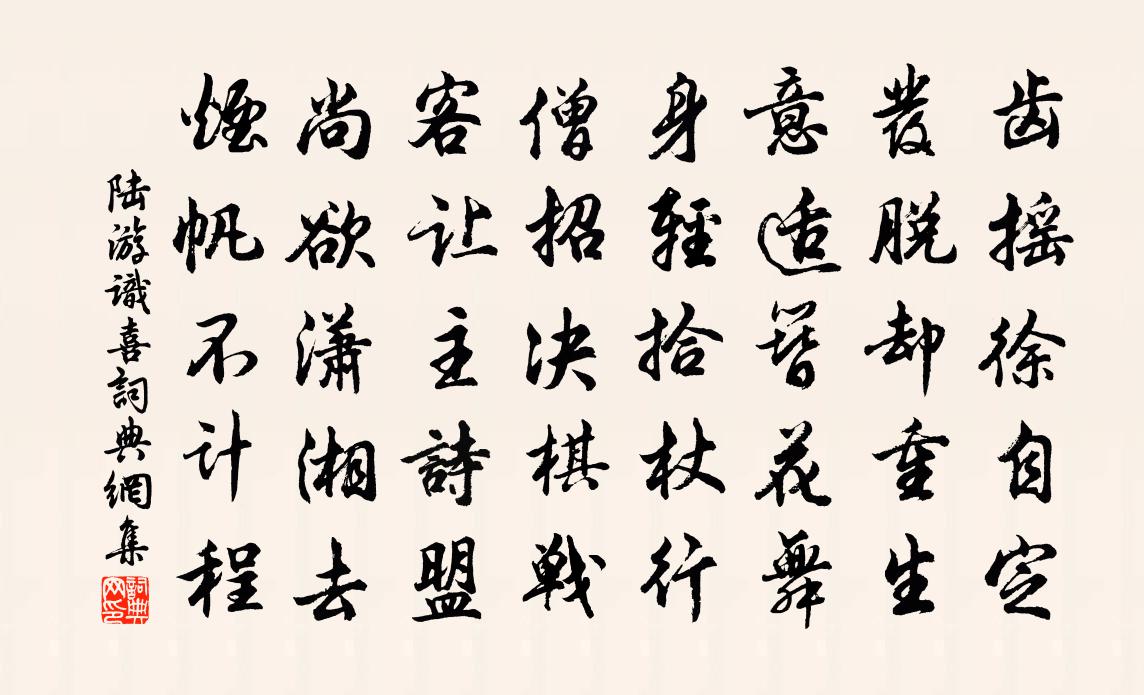 齿摇徐自定
发脱却重生
意适簪花舞
身轻拾杖行
僧招决棋战
客让主诗盟
尚欲潇湘去
烟帆不计程
陆游识喜词典网集
词典网印